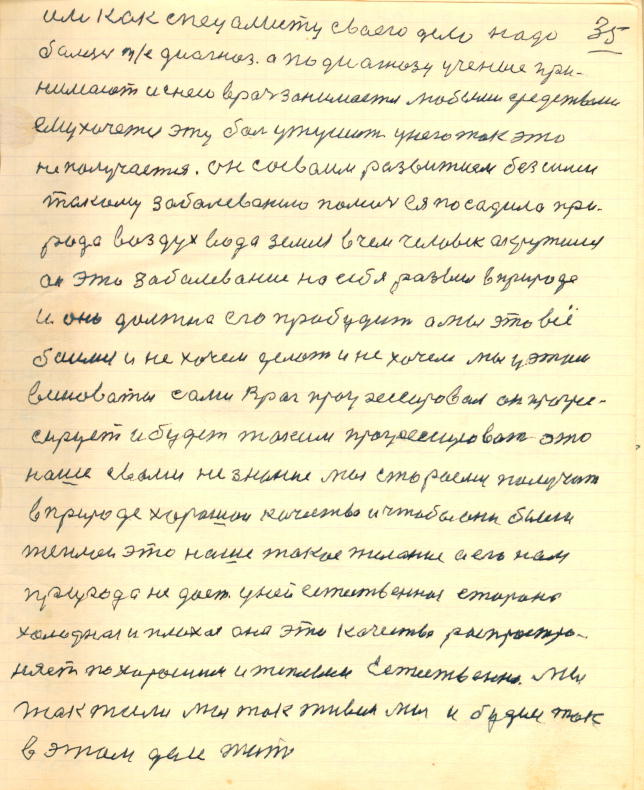 им как специалисту своего дело надо 35
балях п/е диагноз. а по диагнозу ученые при-
нимают и с нею врач занимается любыми средствами
ему хочется эту бол утушит. у него так это
не получается. он со своим развитием безсилен
такому заболеванию
рода воздух вода земля в чем человек
он это заболевание на себя развил в природе
и оно должна его пробудит а мы это всё
боимся и не хочем делат и не хочем мы у этим
виноваты сами Враг прогрессировал он прогре-
сирует и будет таким прогрессироват это
наше с вами не знание мы стараемся получат
в природе хорошои качества и чтобы они были
теплои это наше такое желание а его нам
природа не дает. у ней естественная сторона
холодная и плохая она это качество распростро-
няет по хорошим и теплым Естественно. Мы
так жили мы так живем мы и будем так
в этом деле жит